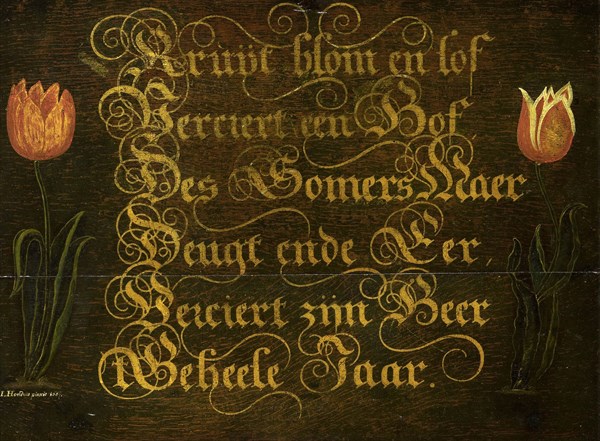 Kruÿt blom en lof
Verciert een Hof,
Des Somers Maer
Deugt ende Eer,
Verciert zijn Heer
Geheele Jaar.